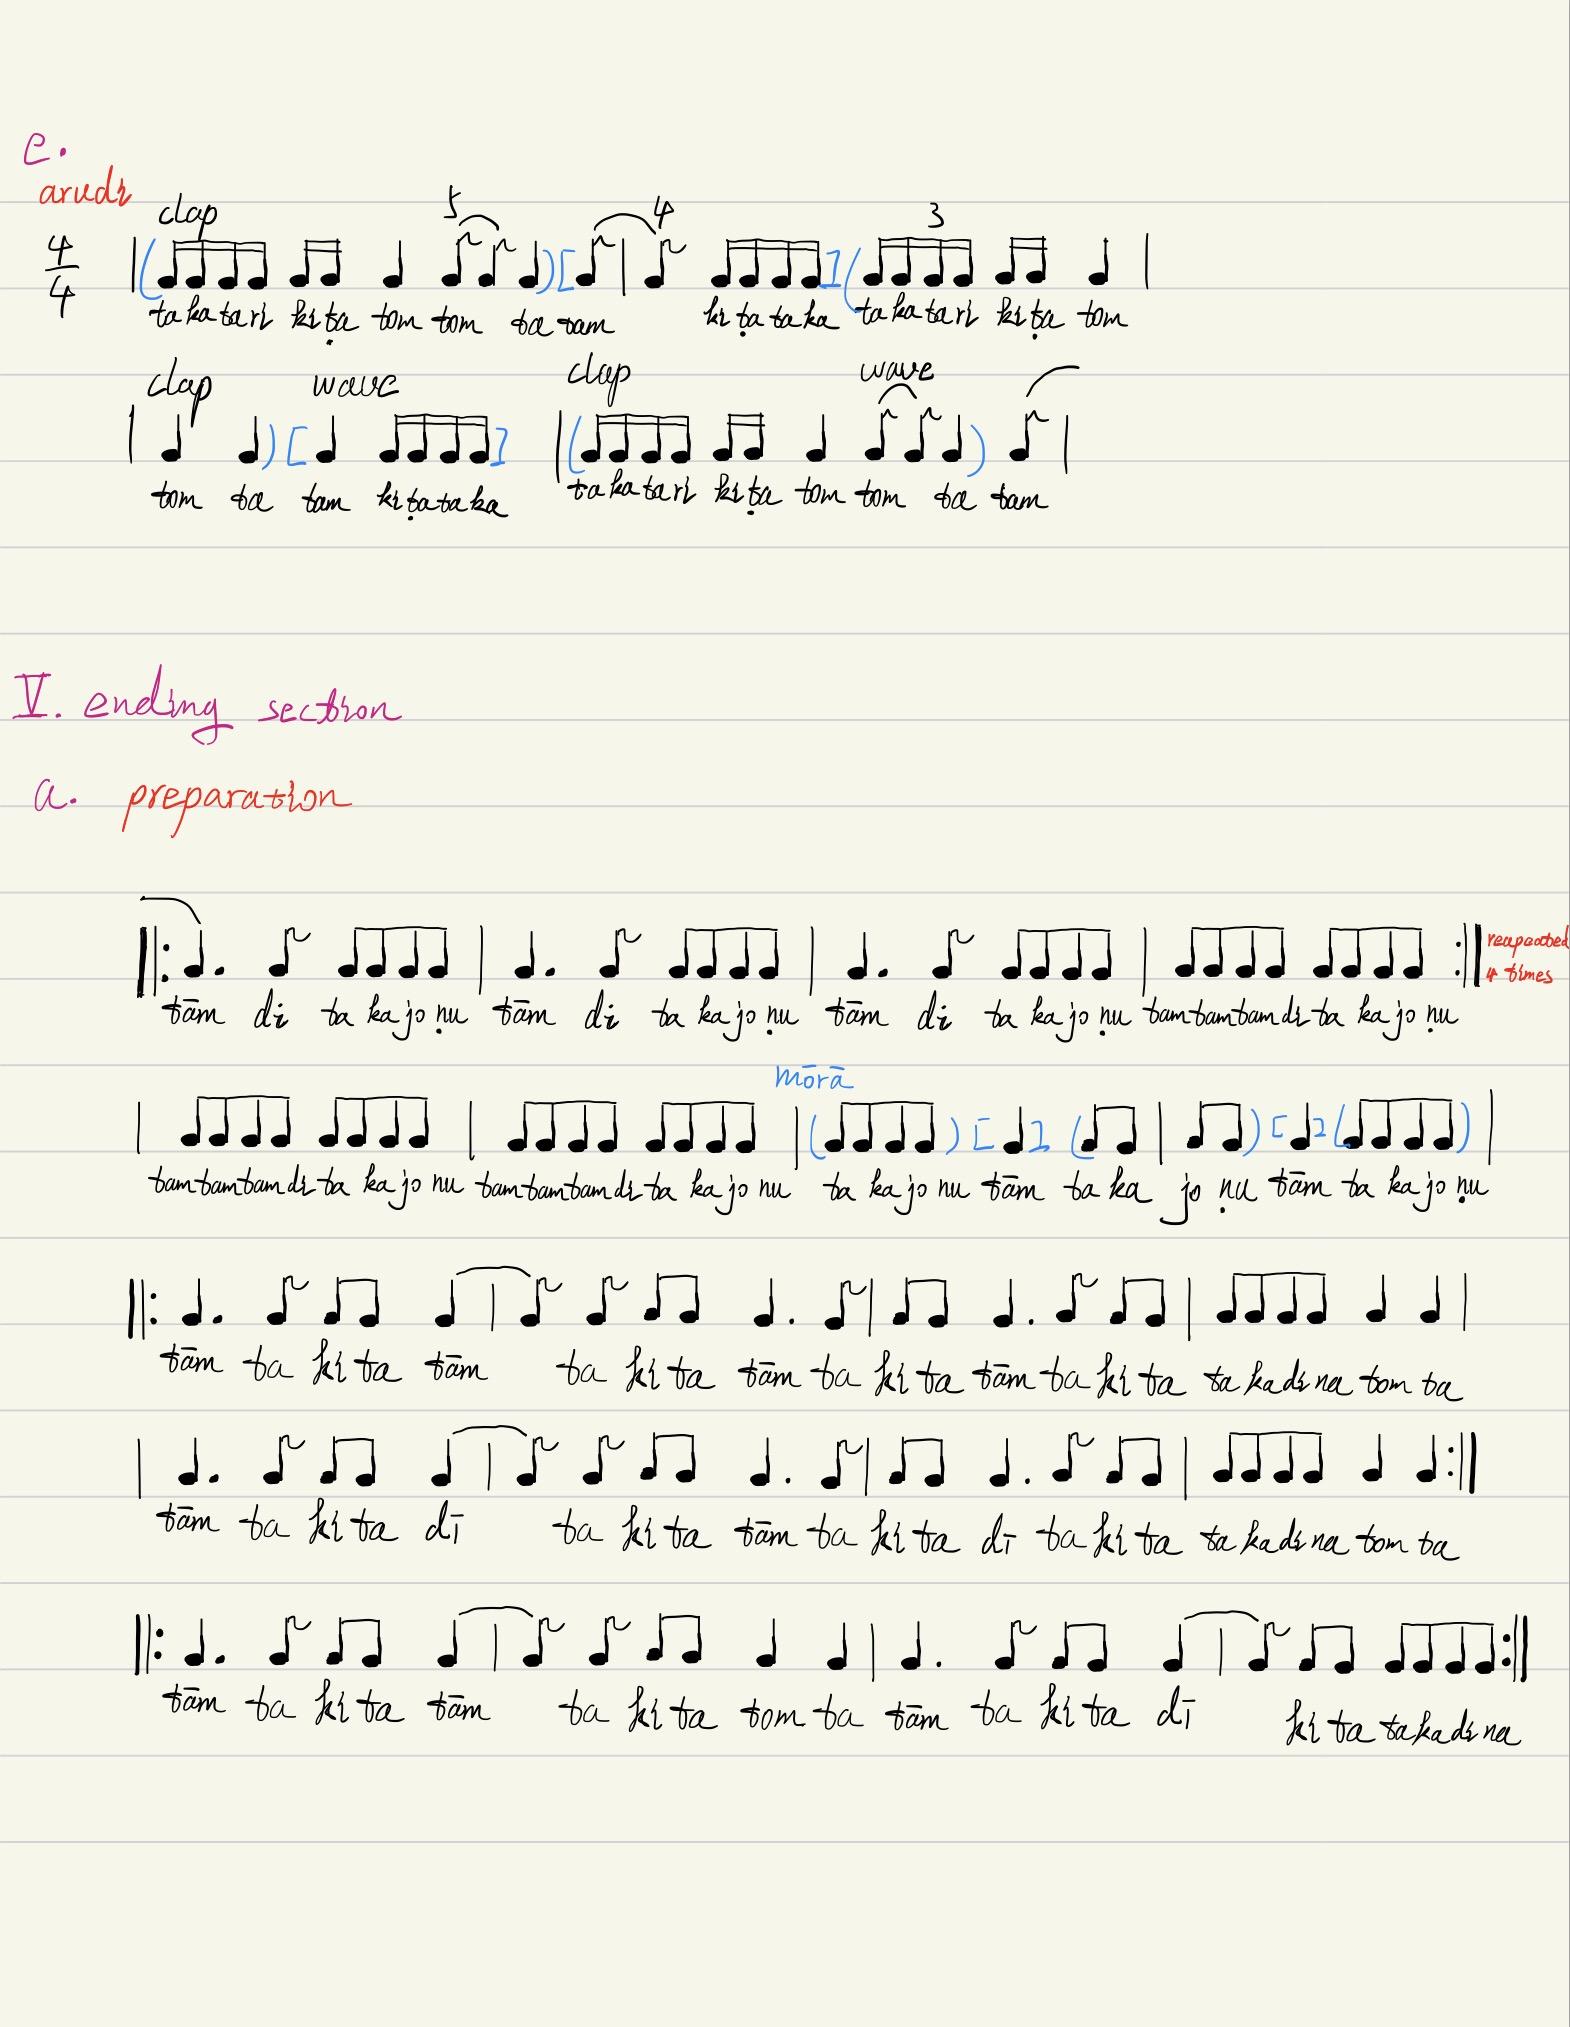 e.
arudi
clap 5 4 3
4/4
takatari kiṭa tom tom ta tam kiṭataka takatari kiṭa tom
clap wave clap wave
tom ta tam kiṭataka takatari kiṭa tom tom ta tam
V. ending section
a. preparation
reapeated
4 times
tām di ta ka jo ṇu tām di ta ka jo ṇu tām di ta ka jo ṇu tamtamtamdi ta ka jo ṇu
mōrā
tamtamtamdi ta ka jo nu tamtamtamdi ta ka jo nu ta ka jo nu tām ta ka jo ṇu tām ta ka jo ṇu
tām ta ki ta tām ta ki ta tām ta ki ta tām ta ki ta ta kadina tom ta
tām ta ki ta dī ta ki ta tām ta ki ta dī ta ki ta ta kadina tom ta
tām ta ki ta tām ta ki ta tom ta tām ta ki ta dī ki ta takadina